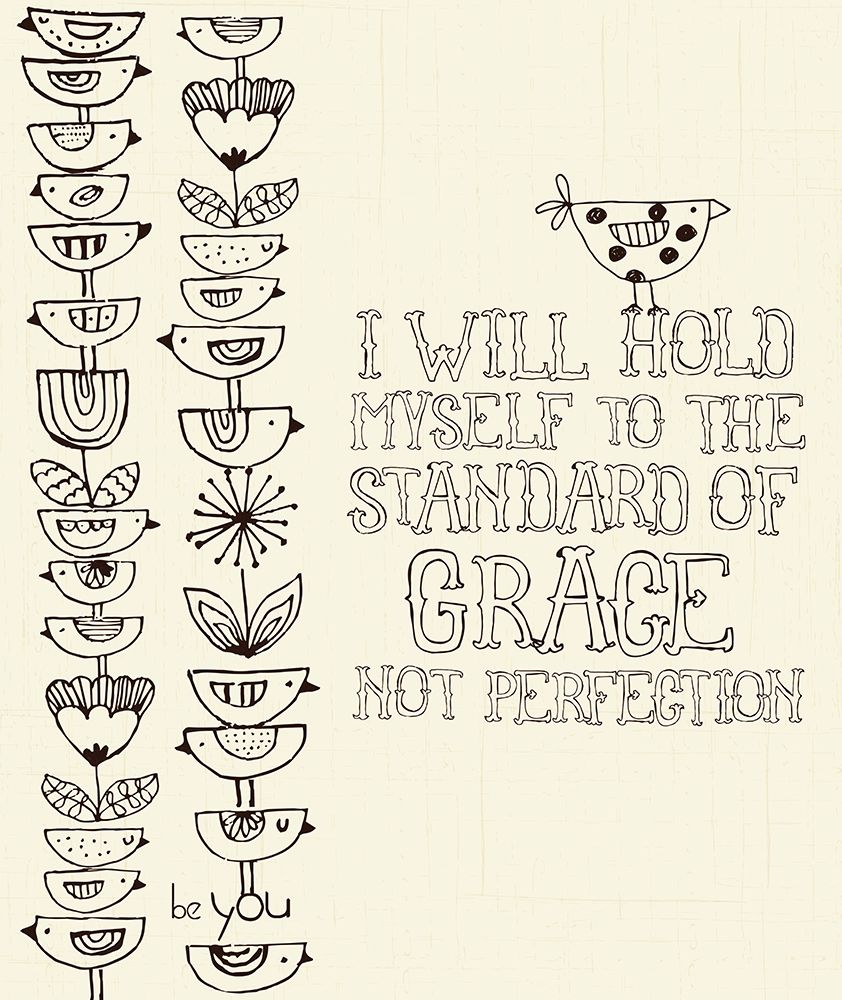 I WILL HOLD
MYSELF TO THE
STANDARD OF
GRACE
NOT PERFECTION
be you